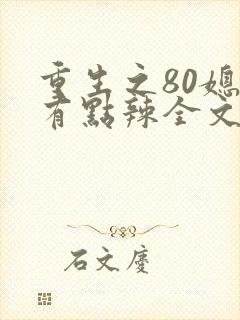 重生之80媳
有點辣全文
石文慶